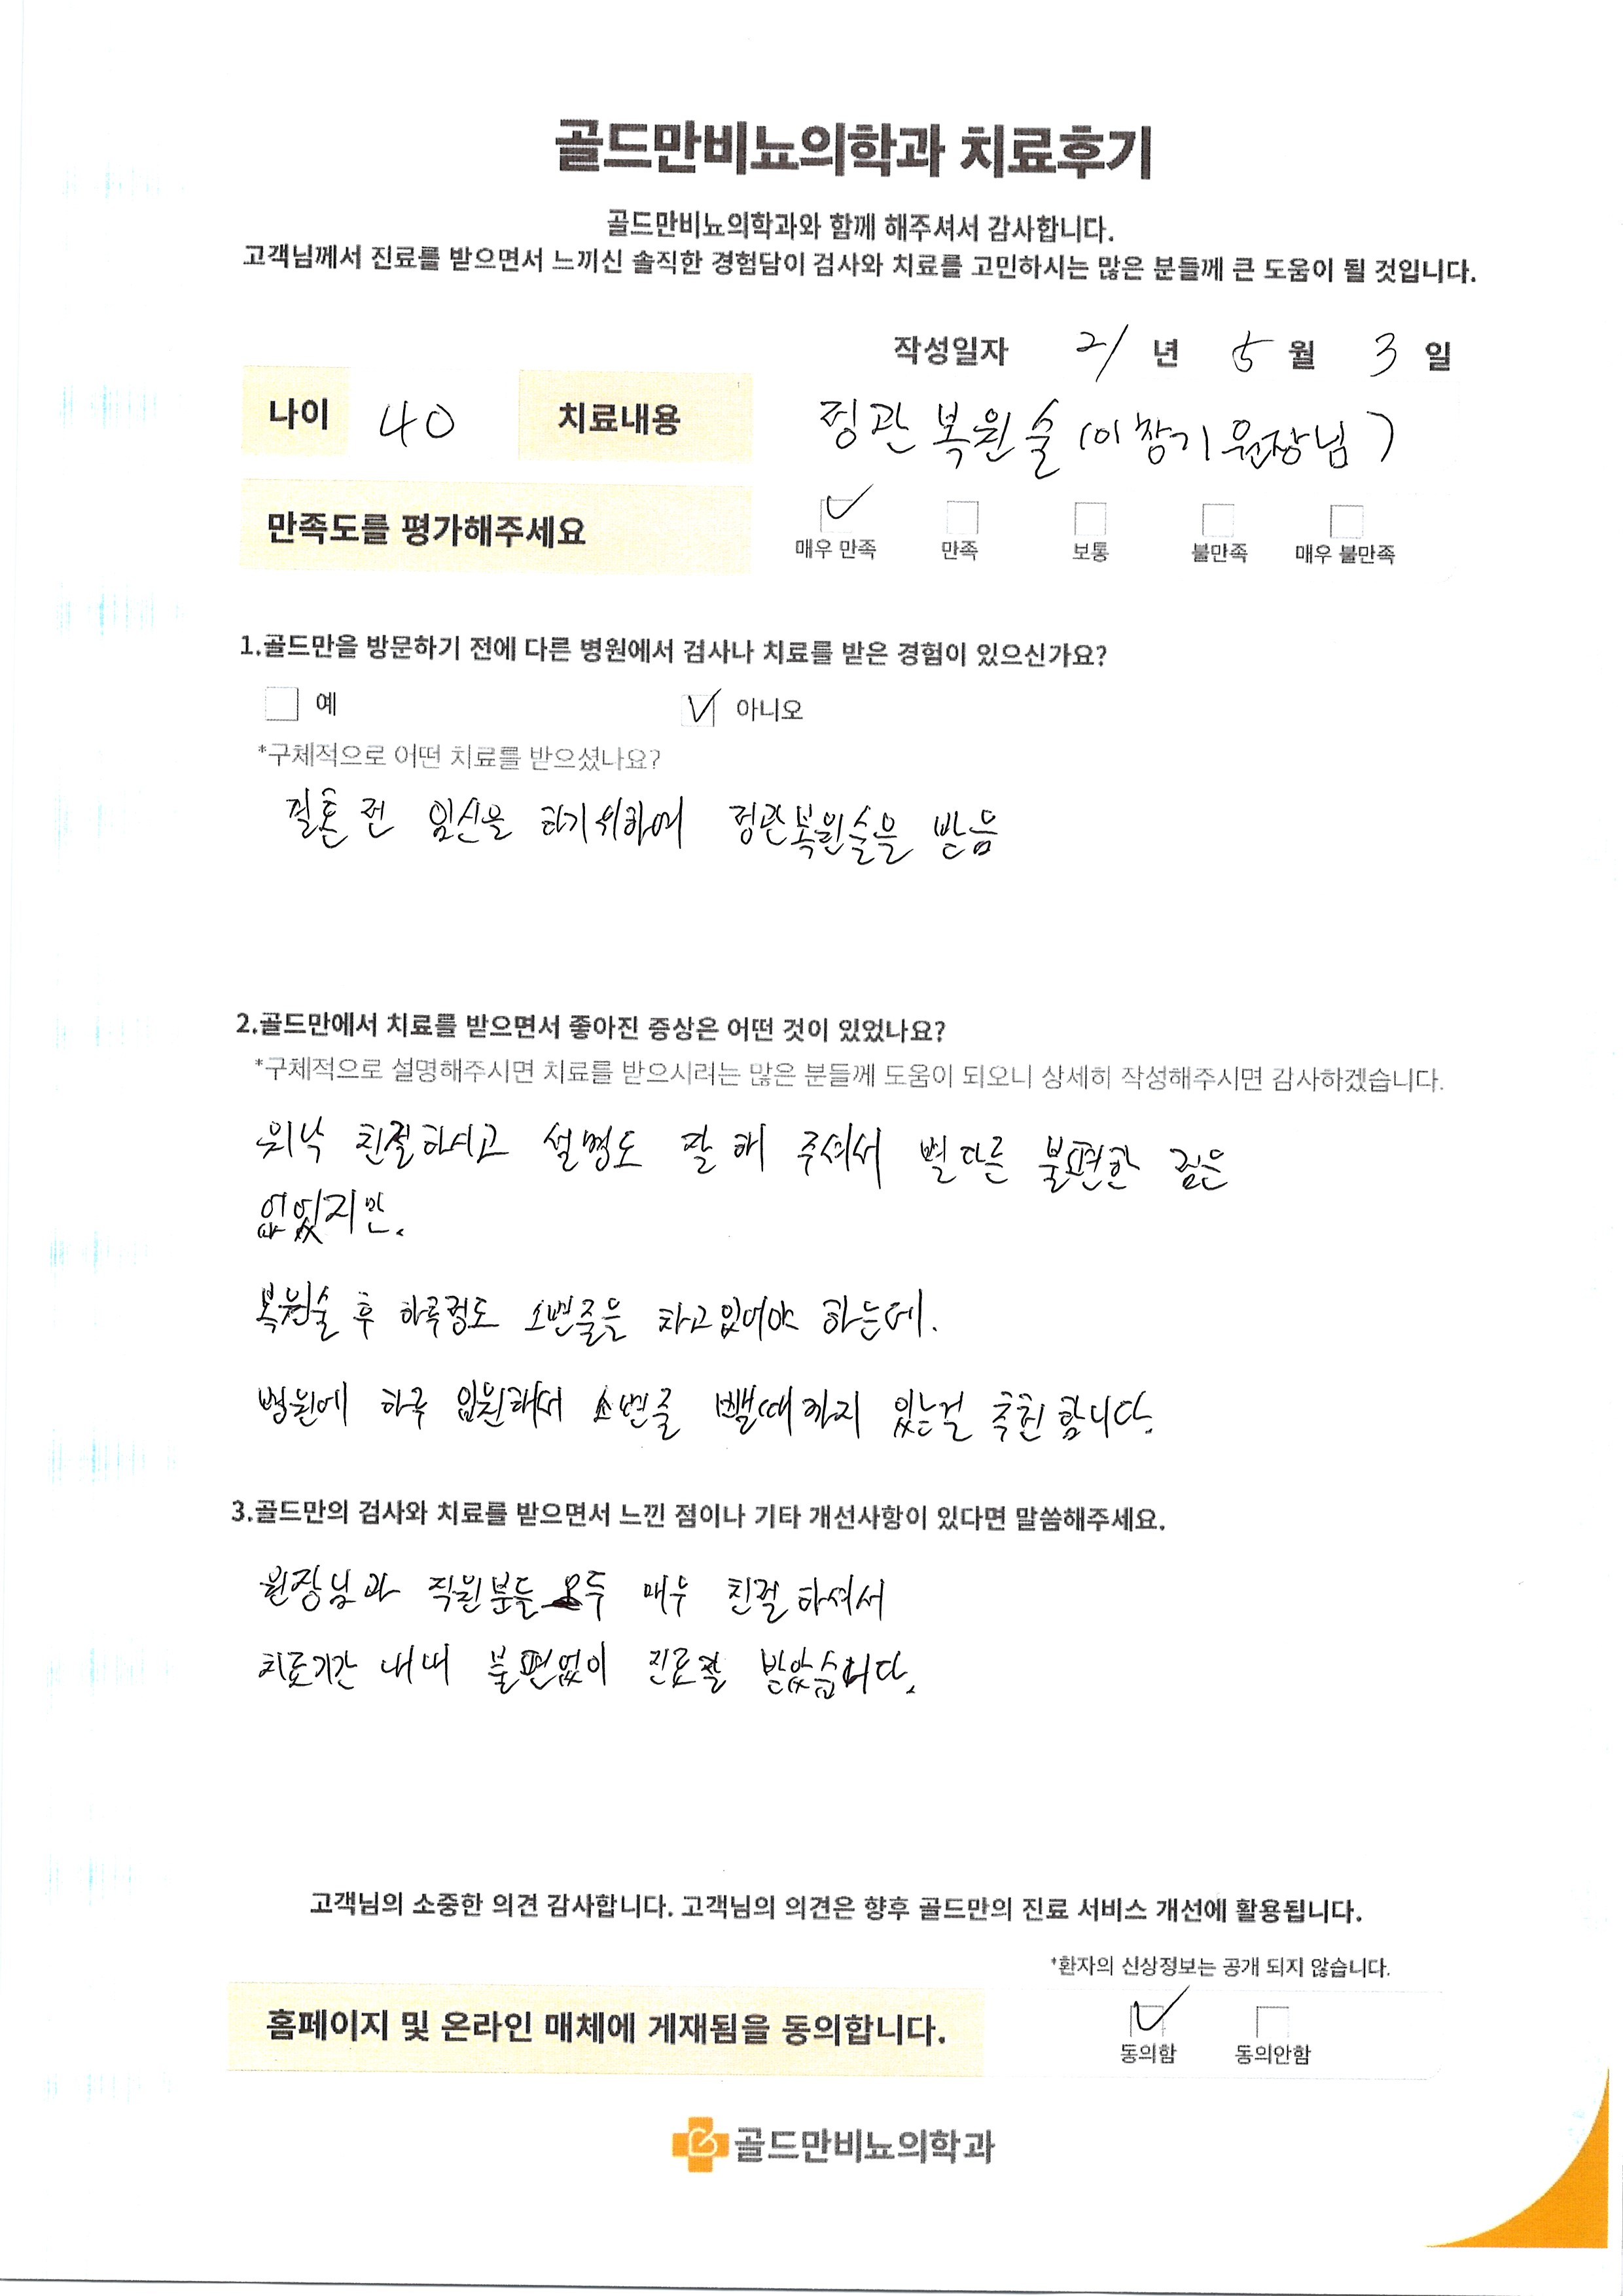 골드만비뇨의학과 치료후기
골드만비뇨의학과와 함께 해주셔서 감사합니다.
고객님께서 진료를 받으면서 느끼신 솔직한 경험담이 검사와 치료를 고민하시는 많은 분들께 큰 도움이 될 것입니다.
작성일자 21 년 5 월 3 일
나이 40 치료내용 정관복원술(이창기원장님)
만족도를 평가해주세요
매우 만족 만족 보통 불만족 매우 불만족
1.골드만을 방문하기 전에 다른 병원에서 검사나 치료를 받은 경험이 있으신가요?
예 아니오
*구체적으로 어떤 치료를 받으셨나요?
결혼 전 임신을 하기위하여 정관복원술을 받음
2.골드만에서 치료를 받으면서 좋아진 증상은 어떤 것이 있었나요?
*구체적으로 설명해주시면 치료를 받으시려는 많은 분들께 도움이 되오니 상세히 작성해주시면 감사하겠습니다.
워낙 친절하시고 설명도 잘 해 주셔서 별다른 불편한 점은
없었지만.
복원술 후 하루정도 소변줄을 차고있어야 하는데.
병원에 하루 입원해서 소변줄 뺄때까지 있는걸 추천합니다.
3.골드만의 검사와 치료를 받으면서 느낀 점이나 기타 개선사항이 있다면 말씀해주세요.
원장님과 직원분들 모두 매우 친절하셔서
치료기간 내내 불편없이 진료잘 받았습니다.
고객님의 소중한 의견 감사합니다. 고객님의 의견은 향후 골드만의 진료 서비스 개선에 활용됩니다.
*환자의 신상정보는 공개 되지 않습니다.
홈페이지 및 온라인 매체에 게재됨을 동의합니다.
동의함 동의안함
골드만비뇨의학과